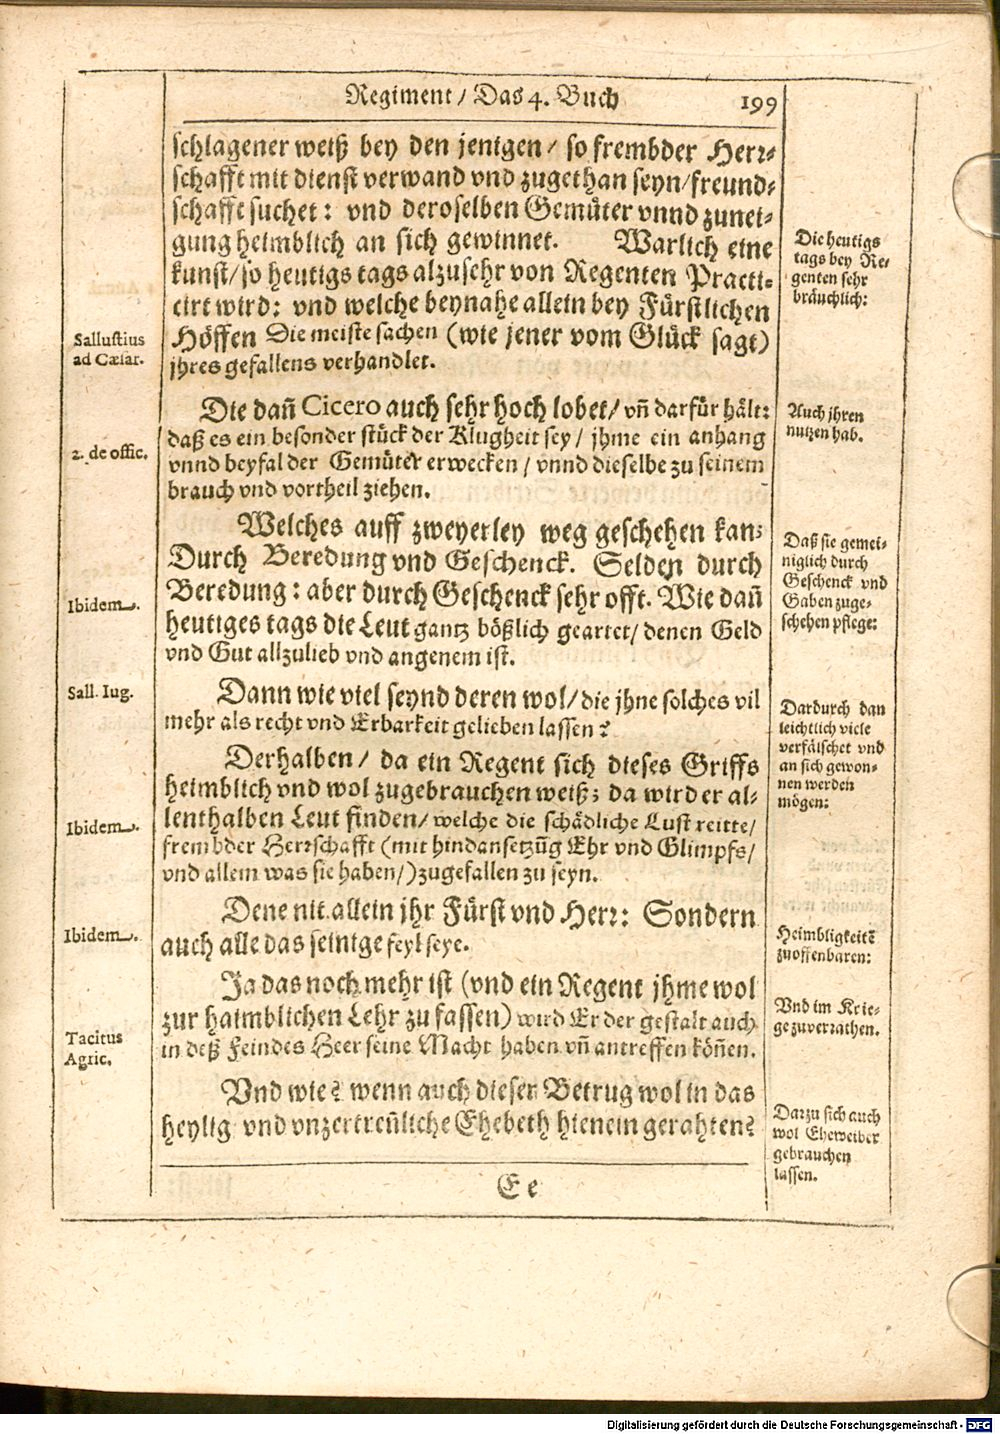 Regiment / Das 4. Buch 199
schlagener weiß bey den jenigen / so frembder Herr-
schafft mit dienst verwand vnd zugethan seyn / freund-
schafft suchet: vnd deroselben Gemüter vnnd zunei-
gung heimblich an sich gewinnet. Warlich eine
kunst / so heutigs tags alzusehr von Regenten Practi-
cirt wird: vnd welche beynahe allein bey Fürstlichen
Höffen Die meiste sachen (wie jener vom Glück sagt)
jhres gefallens verhandlet.
Die dañ Cicero auch sehr hoch lobet / vñ darfür hält:
daß es ein besonder stück der Klugheit sey / jhme ein anhang
vnnd beyfal der Gemüter erwecken / vnnd dieselbe zu seinem
brauch vnd vortheil ziehen.
Welches auff zweyerley weg geschehen kan:
Durch Beredung vnd Geschenck. Selden durch
Beredung: aber durch Geschenck sehr offt. Wie dañ
heutiges tags die Leut gantz bößlich geartet / denen Geld
vnd Gut allzulieb vnd angenem ist.
Dann wie viel seynd deren wol / die jhne solches vil
mehr als recht vnd Erbarkeit gelieben lassen?
Derhalben / da ein Regent sich dieses Griffs
heimblich vnd wol zugebrauchen weiß; da wird er al-
lenthalben Leut finden / welche die schädliche Lust reitte /
frembder Herrschafft (mit hindansetzũg Ehr vnd Glimpfs /
vnd allem was sie haben /) zugefallen zu seyn.
Dene nit allein jhr Fürst vnd Herr: Sondern
auch alle das seinige feyl seye.
Ja das noch mehr ist (vnd ein Regent jhme wol
zur haimblichen Lehr zu fassen) wird Er der gestalt auch
in deß Feindes Heer seine Macht haben vñ antreffen köñen.
Vnd wie? wenn auch dieser Betrug wol in das
heylig vnd vnzertreñliche Ehebeth hienein gerahten?
Ee
Sallustius
ad Cæsar.
2. de offic.
Ibidem.
Sall. Iug.
Ibidem.
Ibidem.
Tacitus
Agric.
Die heutigs
tags bey Re-
genten sehr
bräuchlich:
Auch jhren
nutzen hab.
Daß sie gemei-
niglich durch
Geschenck vnd
Gaben zuge-
schehen pflege:
Dardurch dan
leichtlich viele
verfälschet vnd
an sich gewon-
nen werden
mögen:
Heimbligkeitẽ
zuoffenbaren:
Vnd im Krie-
ge zuverrathen.
Darzu sich auch
wol Eheweiber
gebrauchen
lassen.
Digitalisierung gefördert durch die Deutsche Forschungsgemeinschaft - DFG